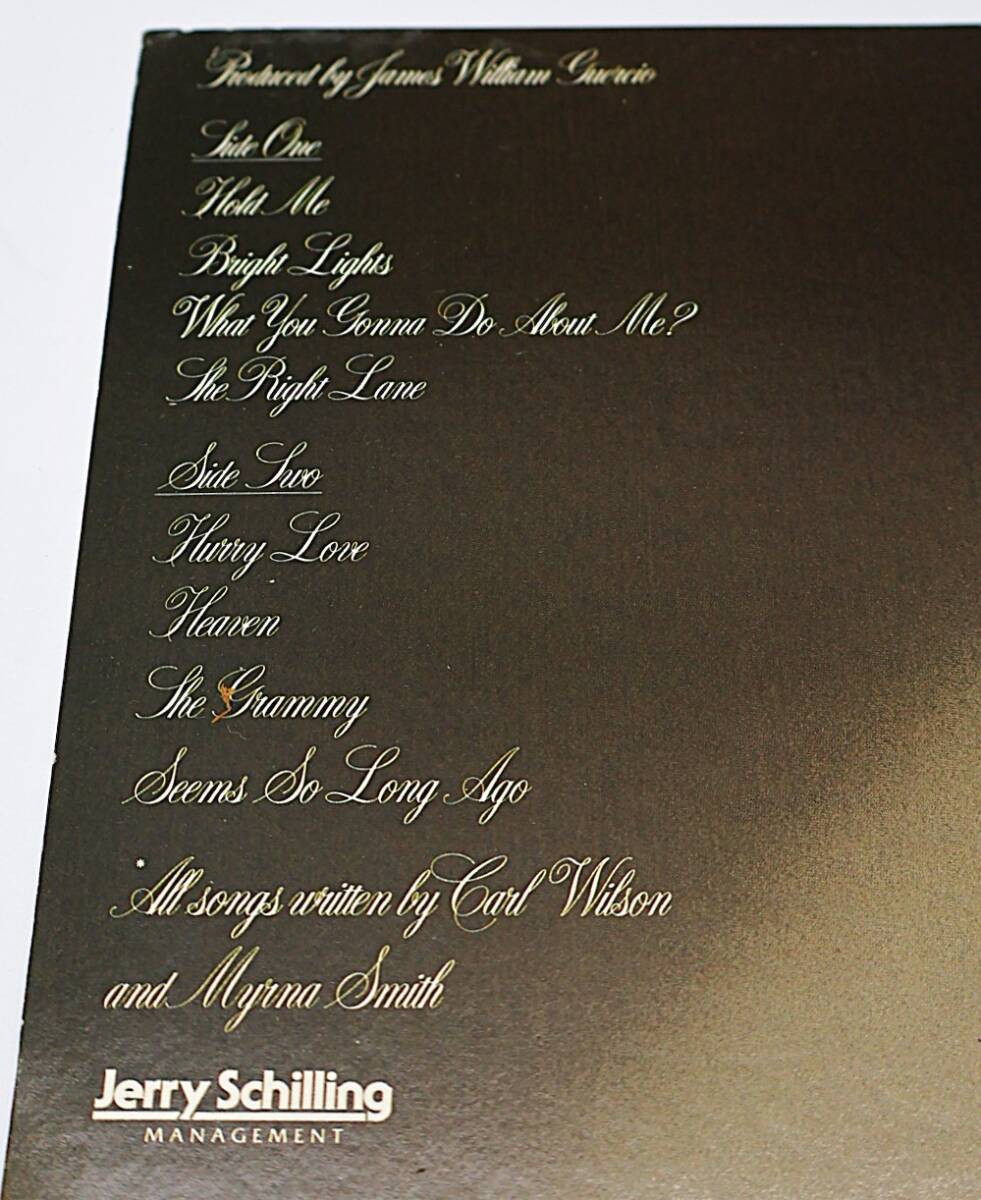 Produced by James William Guercio
Side One
Hold Me
Bright Lights
What You Gonna Do About Me?
The Right Lane
Side Two
Hurry Love
Heaven
The Grammy
Seems So Long Ago
*All songs written by Carl Wilson
and Myrna Smith
Jerry Schilling
MANAGEMENT